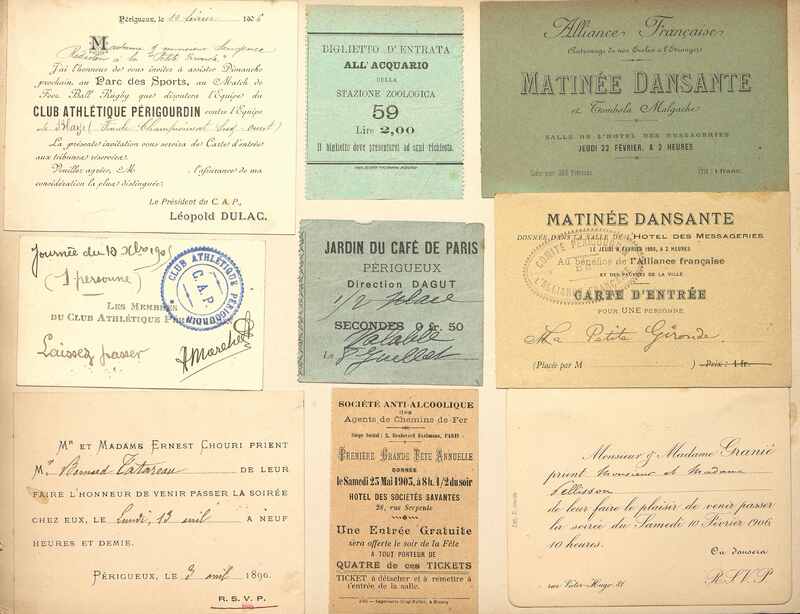 Périgueux, le 10 février 190
Madame & monsieur
Rédaction à la "Petite Gironde"
J'ai l'honneur de vous inviter à assister Dimanche
prochain, au Parc des Sports, au Match de
Foot Ball Rugby que disputera l'Equipe du
CLUB ATHLÉTIQUE PÉRIGOURDIN contre l'Equipe
de Blaye (Finale Championnat Sud Ouest)
La présente invitation vous servira de Carte d'entrée
aux tribunes réservées.
Veuillez agréer, M l'assurance de ma
considération la plus distinguée.
Le Président du C. A. P.,
Léopold DULAC.
BIGLIETTO D'ENTRATA
ALL'ACQUARIO
DELLA
STAZIONE ZOOLOGICA
59
Lire 2,00
Il biglietto deve presentarsi ad ogni richiesta.
Alliance Française
Patronage de nos Ecoles à l'Etranger
MATINÉE DANSANTE
et Tombola Malgache
SALLE DE L'HOTEL DES MESSAGERIES
JEUDI 22 FÉVRIER, A 2 HEURES
Prix : 1 franc.
Journée du 10 Xbre 1905
(1 personne)
LES MEMBRES
DU CLUB ATHLÉTIQUE
Laissez passer
CLUB ATHLÉTIQUE PÉRIGOURDIN
C.A.P.
JARDIN DU CAFÉ DE PARIS
PÉRIGUEUX
Direction DAGUT
1/2 place
SECONDES 0 fr. 50
Valable
Le 8 Juillet
MATINÉE DANSANTE
DONNÉE DANS LA SALLE DE L'HOTEL DES MESSAGERIES
LE JEUDI FÉVRIER 1906, A 2 HEURES
Au bénéfice de l'Alliance française
ET DES PAUVRES DE LA VILLE
CARTE D'ENTRÉE
POUR UNE PERSONNE
La Petite Gironde
(Placée par M ) Prix : 1 fr.
COMITÉ PÉRIGOURDIN
DE
L'ALLIANCE FRANÇAISE
MR ET MADAME ERNEST CHOURI PRIENT
Mr Bernard Tatareau DE LEUR
FAIRE L'HONNEUR DE VENIR PASSER LA SOIRÉE
CHEZ EUX, LE Lundi, 13 avril A NEUF
HEURES ET DEMIE.
PÉRIGUEUX, LE 3 avril 1896.
R. S. V. P.
SOCIÉTÉ ANTI-ALCOOLIQUE
des
Agents de Chemins de Fer
Siège Social : 5, Boulevard Haussmann, PARIS
PREMIÈRE GRANDE FÊTE ANNUELLE
DONNÉE
le Samedi 23 Mai 1903, à 8h.1/2 du soir
HOTEL DES SOCIÉTÉS SAVANTES
28, rue Serpente
Une Entrée Gratuite
sera offerte le soir de la Fête
A TOUT PORTEUR DE
QUATRE de ces TICKETS
TICKET à détacher et à remettre à
l'entrée de la salle.
Monsieur & Madame Granié
prient Monsieur et Madame
Pellisson
de leur faire le plaisir de venir passer
la soirée du Samedi 10 Février 1906
10 heures.
On dansera
rue Victor-Hugo 81 R.S.V.P.